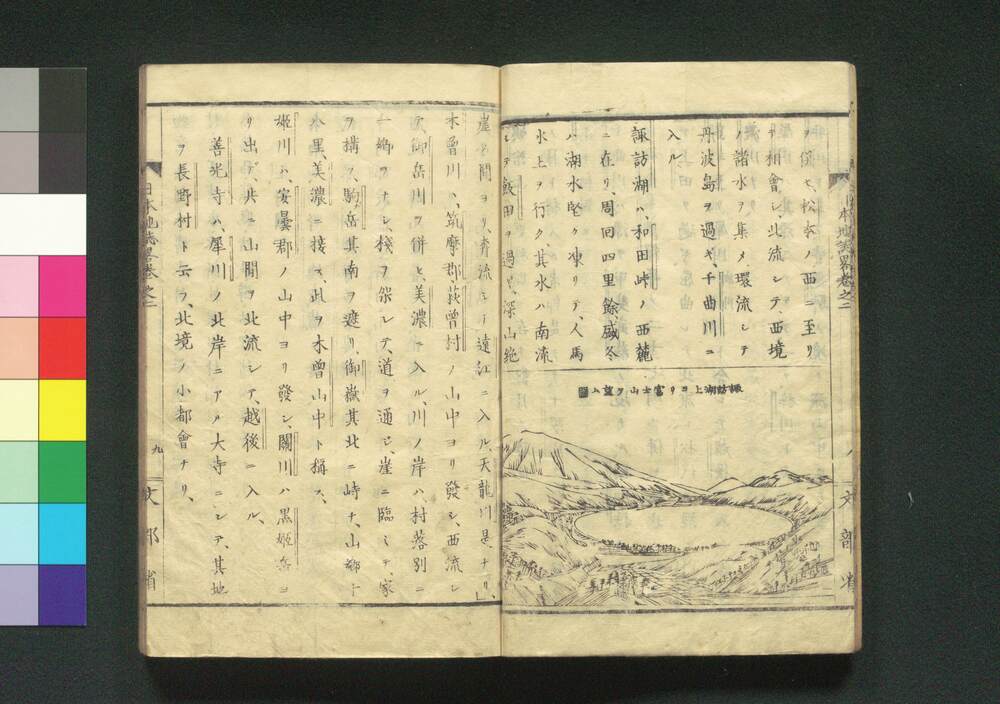 ヲ儴セ、松本ノ西ニ至リ
テ相會シ、北流シテ、西境
ノ諸水ヲ集メ、環流シテ
丹波島ヲ過ギ、千曲川ニ
入ル、
諏訪湖ハ、和田峠ノ西麓
ニ在リ、周回四里餘、盛冬
ハ湖水堅ク凍リテ、人馬
氷上ヲ行ク、其水ハ南流
シテ飯田ヲ過ギ、深山絶
諏訪湖上ヨリ富士山ヲ望ム圖
日本地誌略卷之二
文部省
崖ノ間ヨリ、奔流シテ遠江ニ入ル、天龍川是ナリ、
木曾川ハ、筑摩郡、荻曾村ノ山中ヨリ發シ、西流シ
テ、御岳川ヲ併セ、美濃ニ入ル、川ノ岸ハ、村落別ニ
一鄉ヲナシ、棧ヲ架シテ、道ヲ通ジ、崖ニ臨ミテ、家
ヲ構フ、駒岳其南ヲ遮リ、御嶽其北ニ峙チ、山鄉十
八里、美濃ニ接ス、此ヲ木曾山中ト稱ス、
姬川ハ、安曇郡ノ山中ヨリ發シ、關川ハ黒姬岳ヨ
リ出デ、共ニ山間ヲ北流シテ、越後ニ入ル、
善光寺ハ、犀川ノ北岸ニアル大寺ニシテ、其地
ヲ長野村ト云フ、北境ノ小都會ナリ、
日本地誌略卷之二
九
文部省